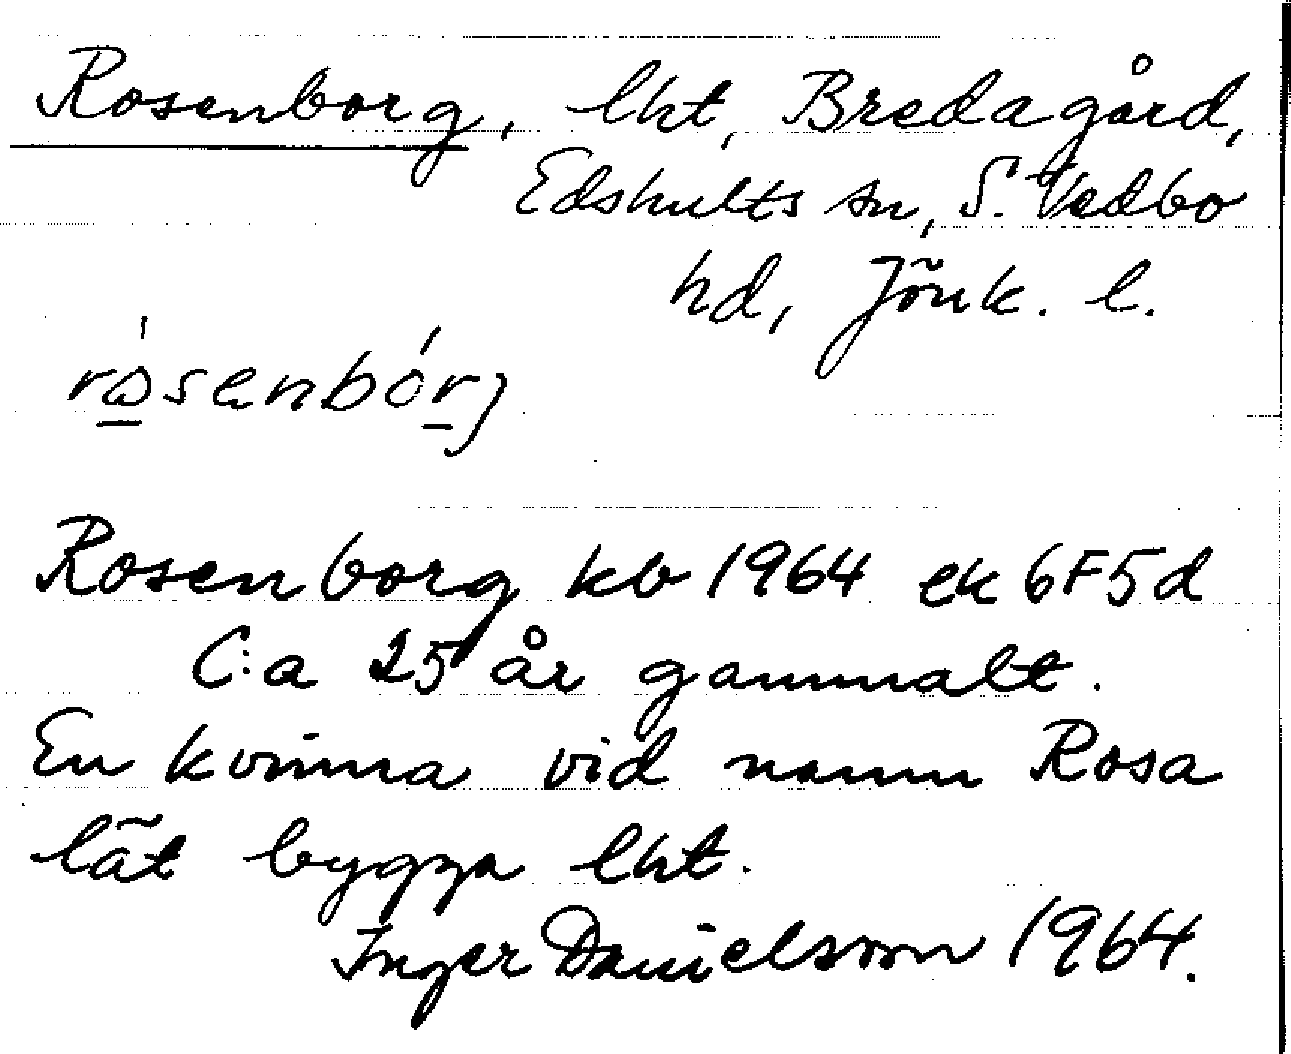 Rosenborg, lht, Bredagård,
Edshults sn, S. Vedbo
hd, Jönk. l.
rósenbórj
Rosenborg kb 1964 ek 6F5d
C:a 25 år gammalt.
En kvinna vid namn Rosa
lät bygga lht.
Inger Danielsson 1964.